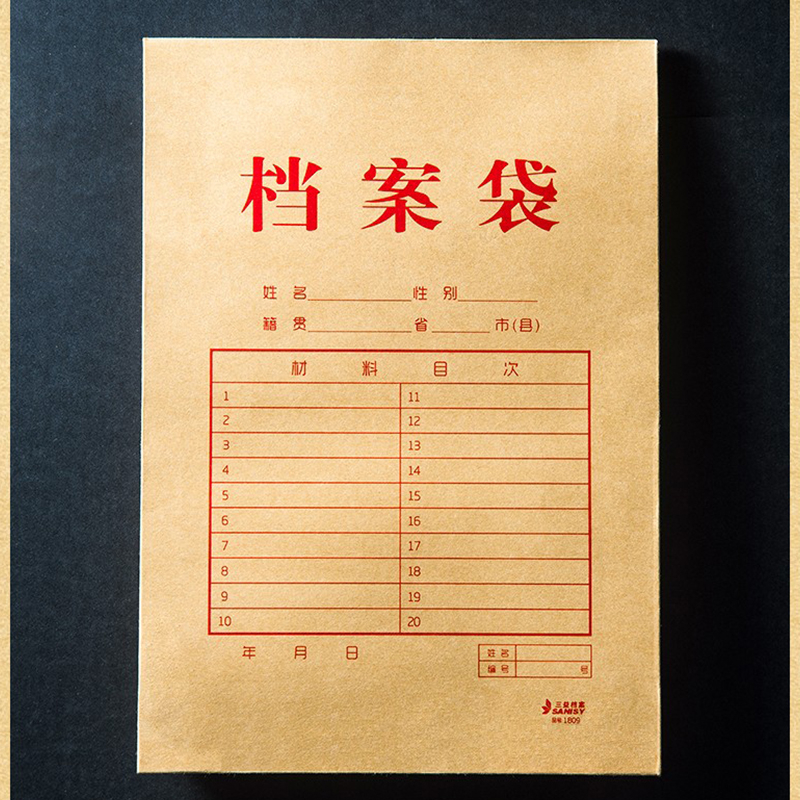 档案袋
姓名 性别
籍贯 省 市(县)
材料目次
1 11
2 12
3 13
4 14
5 15
6 16
7 17
8 18
9 19
10 20
年 月 日
姓名
编号 号
三益档案
SANISY
1809